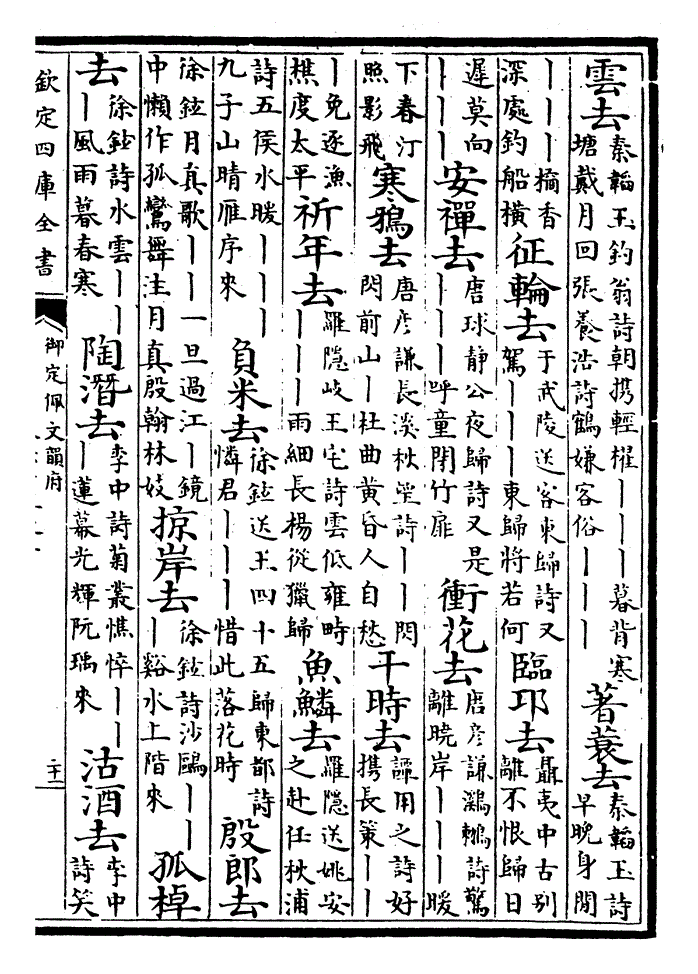 雲去秦韜玉釣翁詩朝携輕櫂｜｜｜暮背寒塘戴月回張養浩詩鶴嫌客俗｜｜｜著蓑去秦韜玉詩早晚身閒
｜｜｜摘香深處釣船橫征輪去于武陵送客東歸詩又駕｜｜｜東歸將若何臨邛去聶夷中古别離不恨歸日
遲莫向｜｜｜安禪去唐球靜公夜歸詩又是｜｜｜呼童閉竹扉衝花去唐彦謙鸂鶒詩驚離曉岸｜｜｜暖
下春汀照影飛寒鴉去唐彦謙長溪秋望詩｜｜閃閃前山｜杜曲黄昏人自愁干時去譚用之詩好携長策｜｜
｜免逐漁樵度太平祈年去羅隱岐王宅詩雲低雍畤｜｜｜雨細長楊從獵歸魚鱗去羅隱送姚安之赴任秋浦
詩五侯水暖｜｜｜九子山晴雁序來負米去徐鉉送王四十五歸東都詩憐君｜｜｜惜此落花時殷郎去
徐鉉月真歌｜｜一旦過江｜鏡中懶作孤鸞舞注月真殷翰林妓掠岸去徐鉉詩沙鷗｜｜｜谿水上階來孤棹
去徐鉉詩水雲｜｜｜風雨暮春寒陶潛去李中詩菊叢憔悴｜｜｜蓮幕光輝阮瑀來沽酒去李中詩笑
欽定四庫全書
御定佩文韻府
二十一